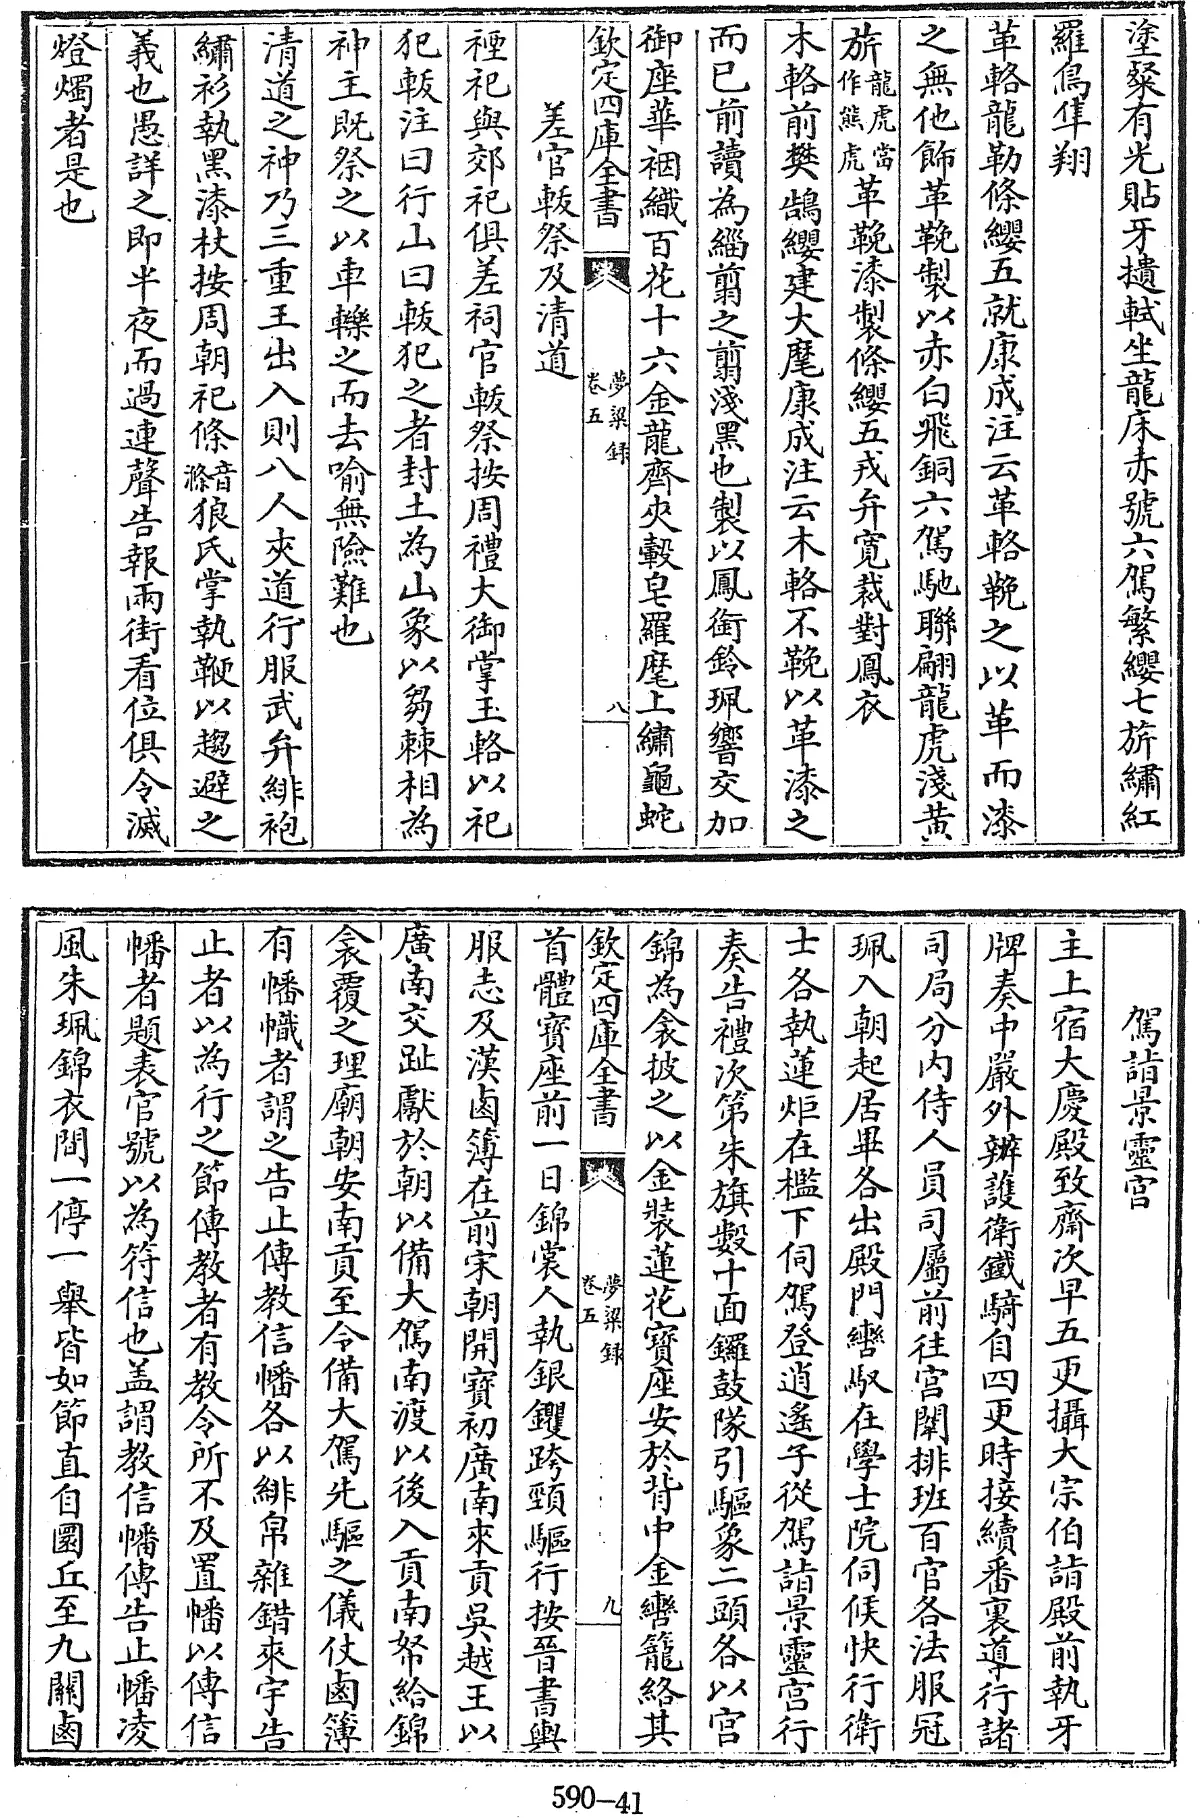 塗髹有光貼牙𣝓軾坐龍床赤號六駕繁纓七旂繡紅
羅鳥隼翔
革輅龍勒條纓五就康成注云革輅鞔之以革而漆
之無他飾革鞔製以赤白飛銅六駕馳聯翩龍虎淺黃
旂龍虎當作熊虎革鞔漆製條纓五戎弁寛裁對鳳衣
木輅前樊鵠纓建大麾康成注云木輅不鞔以革漆之
而已前讀為緇翦之翦淺黑也製以鳳銜鈴珮響交加
御座華裀織百花十六金龍齊夾轂皂羅麾上繡龜蛇
欽定四庫全書
夢粱録
卷五
八
差官軷祭及清道
禋祀與郊祀俱差祠官軷祭按周禮大御掌玉輅以祀
犯軷注曰行山曰軷犯之者封土為山象以芻棘相為
神主既祭之以車轢之而去喻無險難也
清道之神乃三重王出入則八人夾道行服武弁緋袍
繡衫執黑漆杖按周朝祀條音滌狼氏掌執鞭以趨避之
義也愚詳之即半夜而過連聲告報兩街看位俱令滅
燈燭者是也
駕詣景靈宫
主上宿大慶殿致齋次早五更攝大宗伯詣殿前執牙
牌奏中嚴外辦護衛鐵騎自四更時接續番裏導行諸
司局分内侍人員司屬前徃宫闈排班百官各法服冠
珮入朝起居畢各出殿門轡馭在學士院伺候快行衛
士各執蓮炬在檻下伺駕登逍遙子從駕詣景靈宫行
奏告禮次第朱旗數十面鑼鼓隊引驅象二頭各以宫
錦為衾披之以金裝蓮花寳座安於背中金轡籠絡其
欽定四庫全書
夢粱録
卷五
九
首體寳座前一日錦裳人執銀钁跨頸驅行按晉書輿
服志及漢鹵簿在前宋朝開寳初廣南來貢吳越王以
廣南交趾獻於朝以備大駕南渡以後入貢南帑給錦
衾覆之理廟朝安南貢至今備大駕先驅之儀仗鹵簿
有幡幟者謂之告止傳教信幡各以緋帛雜錯來宇告
止者以為行之節傳教者有教令所不及置幡以傳信
幡者題表官號以為符信也盖謂教信幡傳告止幡凌
風朱珮錦衣間一停一舉皆如節直自圜丘至九闗鹵
590-41